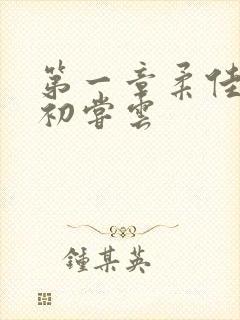 第一章柔佳
初尝雲
鍾某英